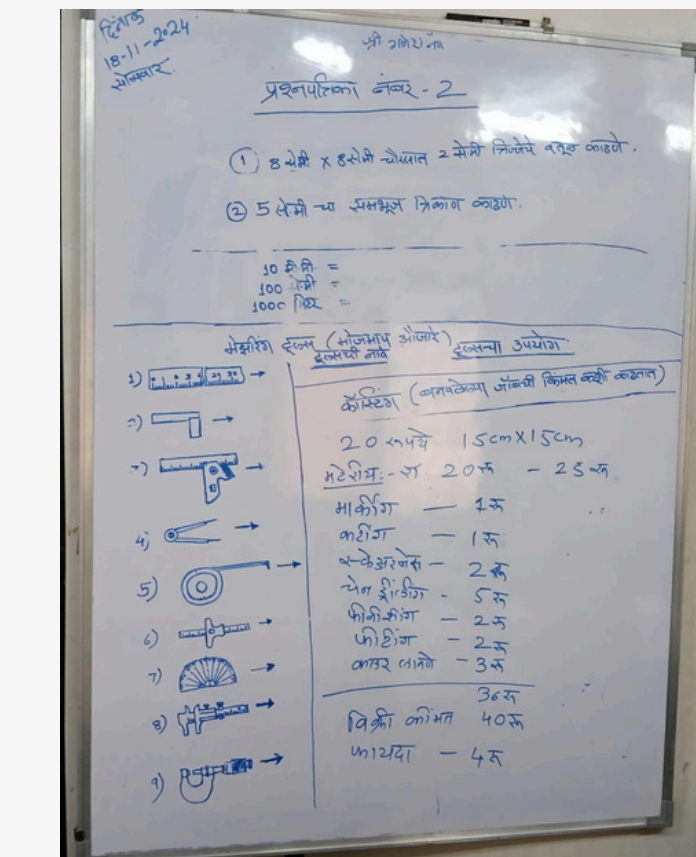 दिनांक
18-11-2024
सोमवार
श्री गणेश नमः
प्रश्नपत्रिका नंबर - 2
① 8 सेमी x 8 सेमी चौरसात 2 सेमी त्रिज्येचे वर्तूळ काढणे.
② 5 से.मी चा समभूज त्रिकोण काढणे.
10 मी.मी. =
100 सेमी =
1000 मिटर =
मेझरिंग टूल्स (मोजमाप औजारे)
टूल्सची नावे
टूल्सचा उपयोग
1)
2)
3)
4)
5)
6)
7)
8)
9)
कॉस्टिंग (बनवलेल्या जॉबची किंमत कशी काढतात)
20 रूपये 15cm X 15cm
मटेरीय:- रॉ 20रू - 25रू.
मार्कींग — 1रू
कटींग — 1रू
स्केअरनेस — 2रू
चेन ड्रीलींग - 5रू
फीनीशींग - 2रू
फीटींग - 2रू
कलर लावने - 3रू
36रू
विक्री कींमत 40रू
फायदा — 4रू